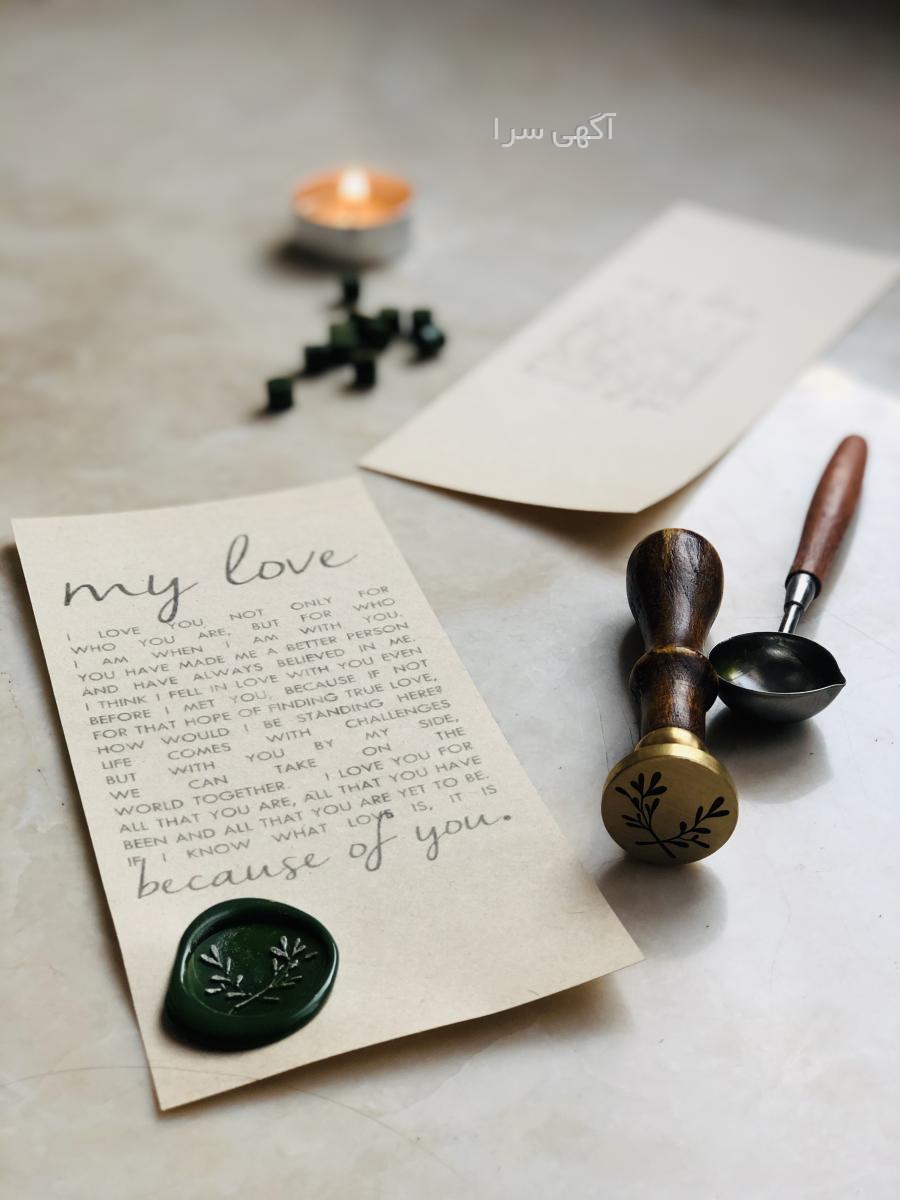 آگهی سرا
my love
I LOVE YOU, NOT ONLY FOR
WHO YOU ARE, BUT FOR WHO
I AM WHEN I AM WITH YOU.
YOU HAVE MADE ME A BETTER PERSON
AND HAVE ALWAYS BELIEVED IN ME.
I THINK I FELL IN LOVE WITH YOU EVEN
BEFORE I MET YOU, BECAUSE IF NOT
FOR THAT HOPE OF FINDING TRUE LOVE,
HOW WOULD I BE STANDING HERE?
LIFE COMES WITH CHALLENGES
BUT WITH YOU BY MY SIDE,
WE CAN TAKE ON THE
WORLD TOGETHER. I LOVE YOU FOR
ALL THAT YOU ARE, ALL THAT YOU HAVE
BEEN AND ALL THAT YOU ARE YET TO BE.
IF I KNOW WHAT LOVE IS, IT IS
because of you.